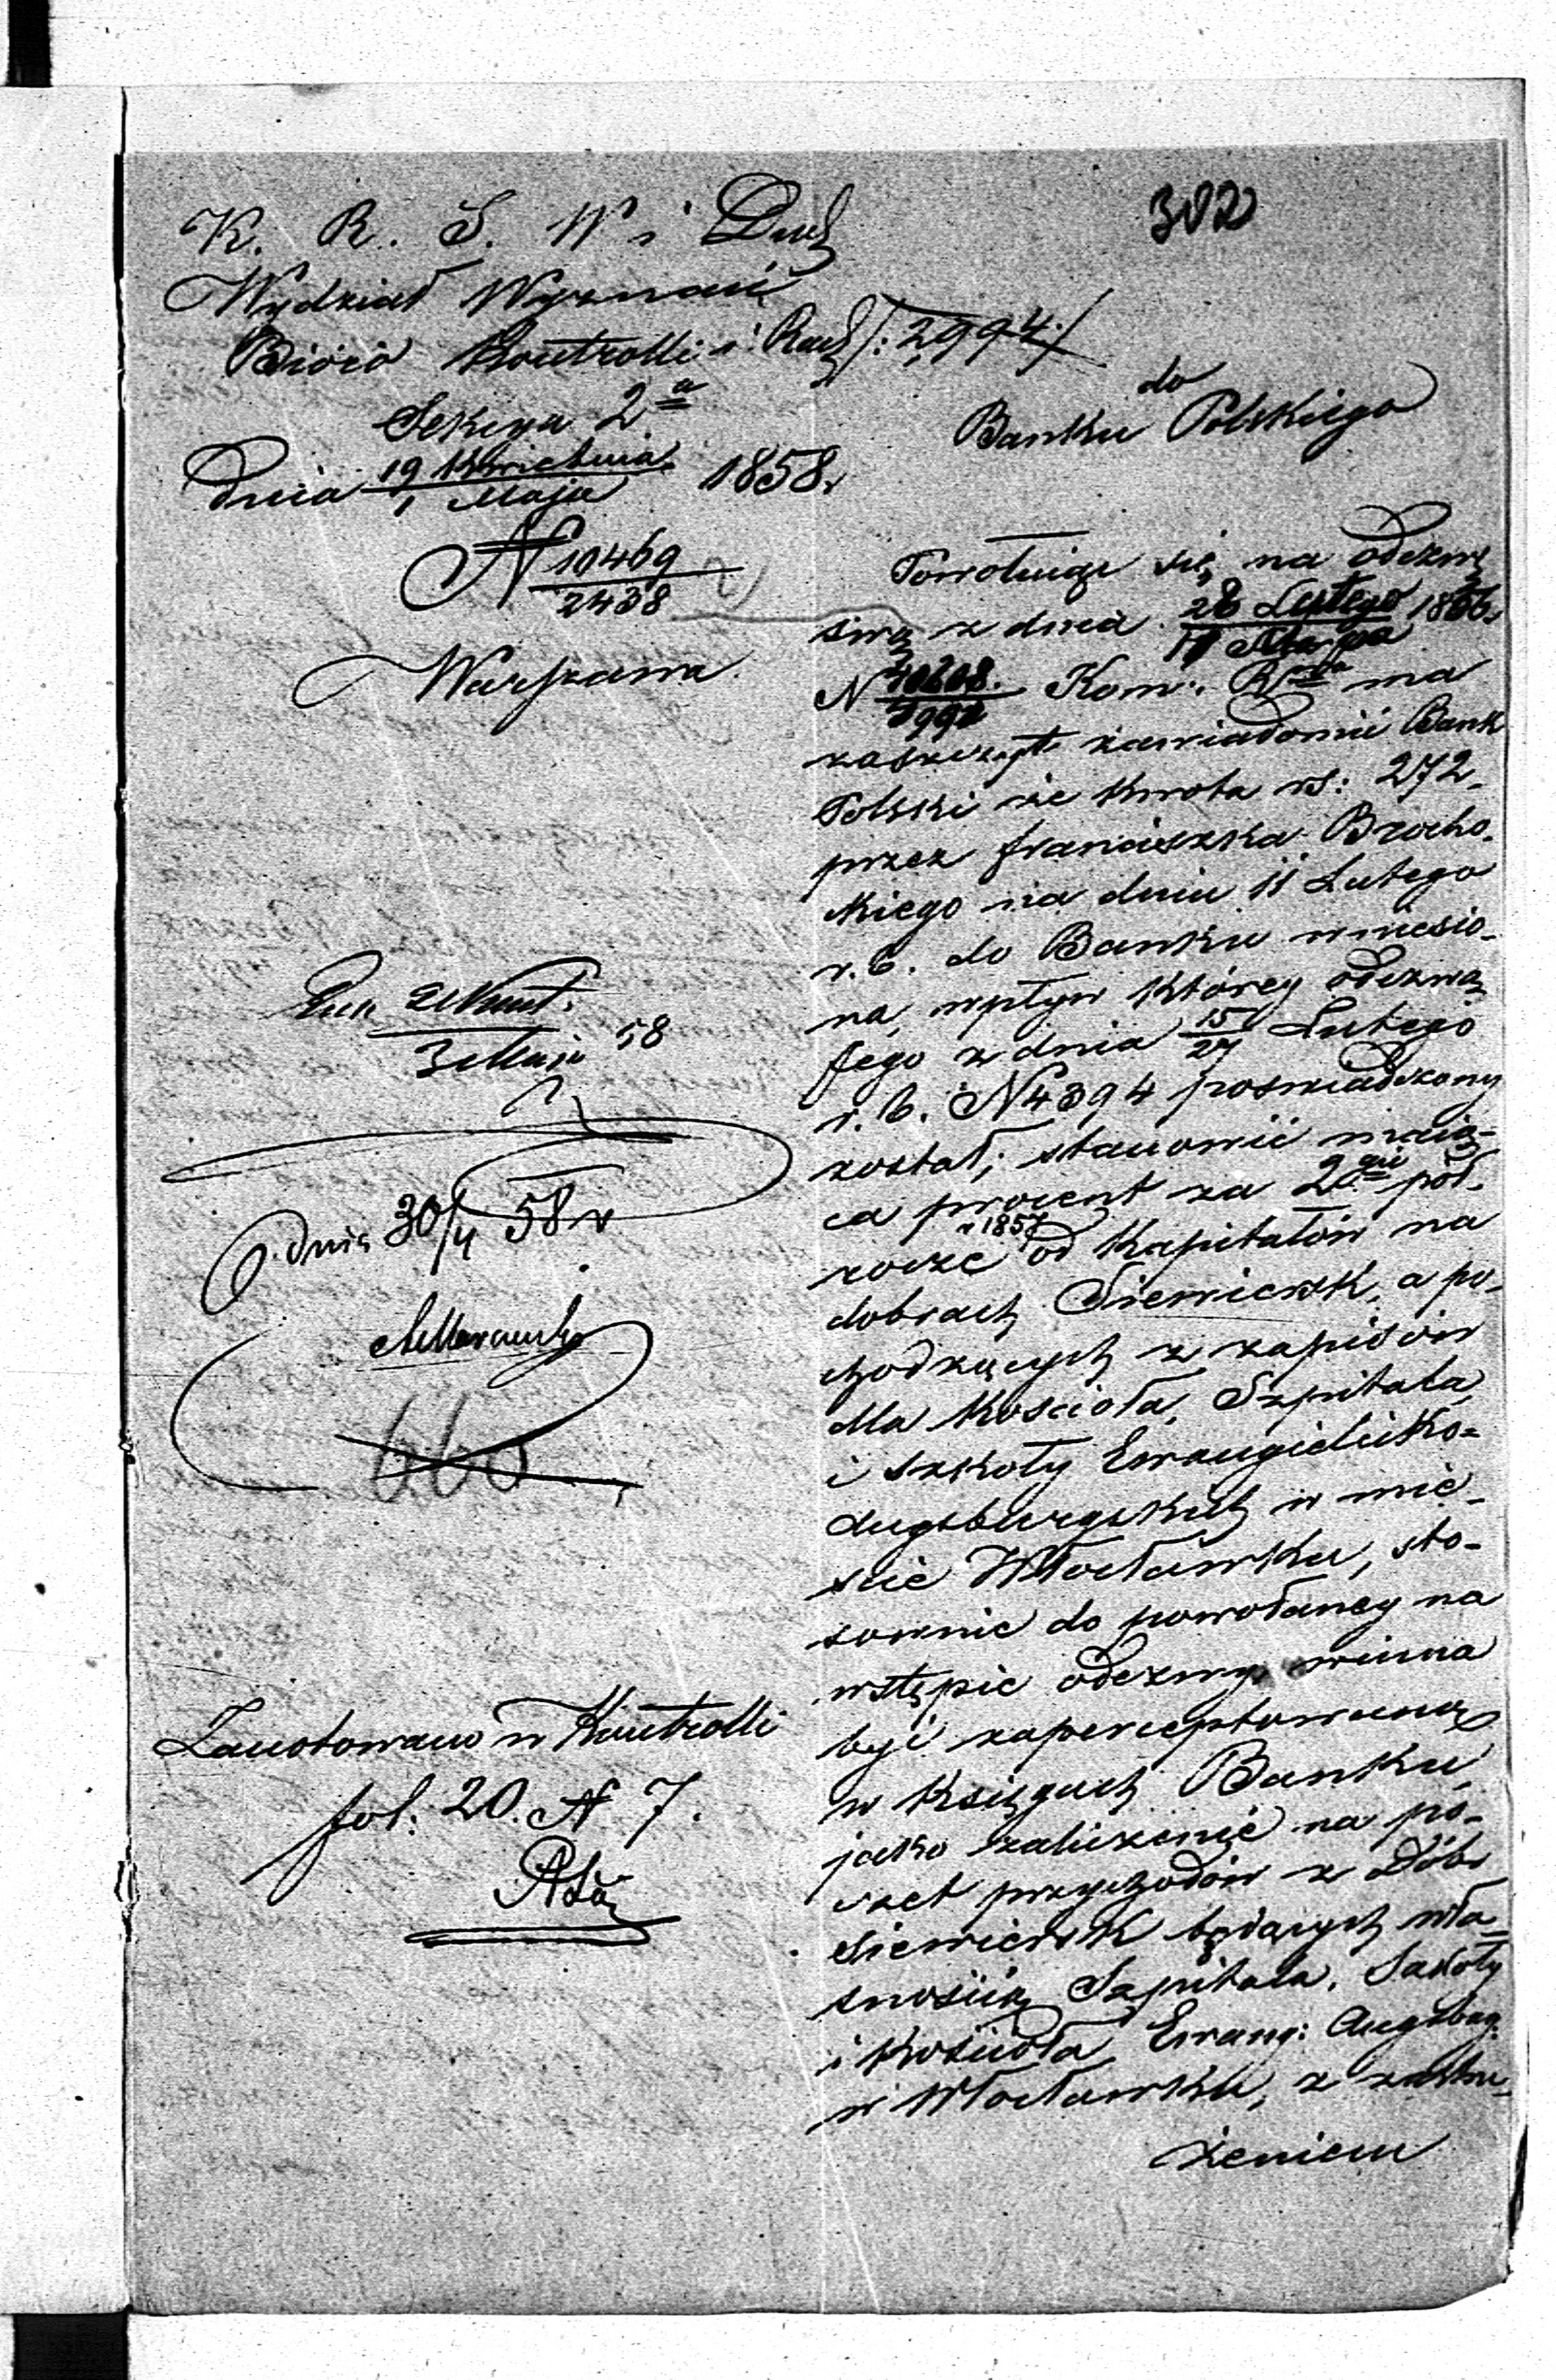 302
K. R. S. W i Duch
Wydział Wyznań
Bióro Kontrolli i Rach /: 2994 :/
Sekcya 2a
Dnia 19 Kwietnia / 1 Maja 1858 r
N 10469 / 2438
Warszawa.
do
Banku Polskiego
Powołuiąc się na odezwę
swą z dnia 28 Lutego 18
N Kom: Rwa ma
zaszczyt zawiadomić Bank
Polski że kwota rs: 272
przez Franciszka Brocho-
ckiego na dniu 11 Lutego
r. b. do Banku wniesio-
na, wpływ którey odezwą
Jego z dnia 15/27 Lutego
r. b. N 4394 poswiadczony
został; stanowić maią-
ca procent za 2gie pół-
rocze r 1857 od kapitałów na
dobrach Siewiersk, a po-
chodzących z zapisów
dla Kościoła, Szpitala
i szkoły Ewangielicko-
Augsburgskich w mie-
scie Włocławku, sto-
sownie do powołaney na
wstępie odezwy winna
być zaperceptowaną
w Księgach Banku
jako zaliczenie na po-
czet przychodów z Dóbr
Siewiersk będących wła-
snością Szpitala, Szkoły
i Kościoła Ewang: Augsburg:
w Włocławku, z zastrze-
żeniem
3 Maja 58
dnia 30/4 58 r
660
Zanotowano w Kontrolli
fol: 20. N 7.